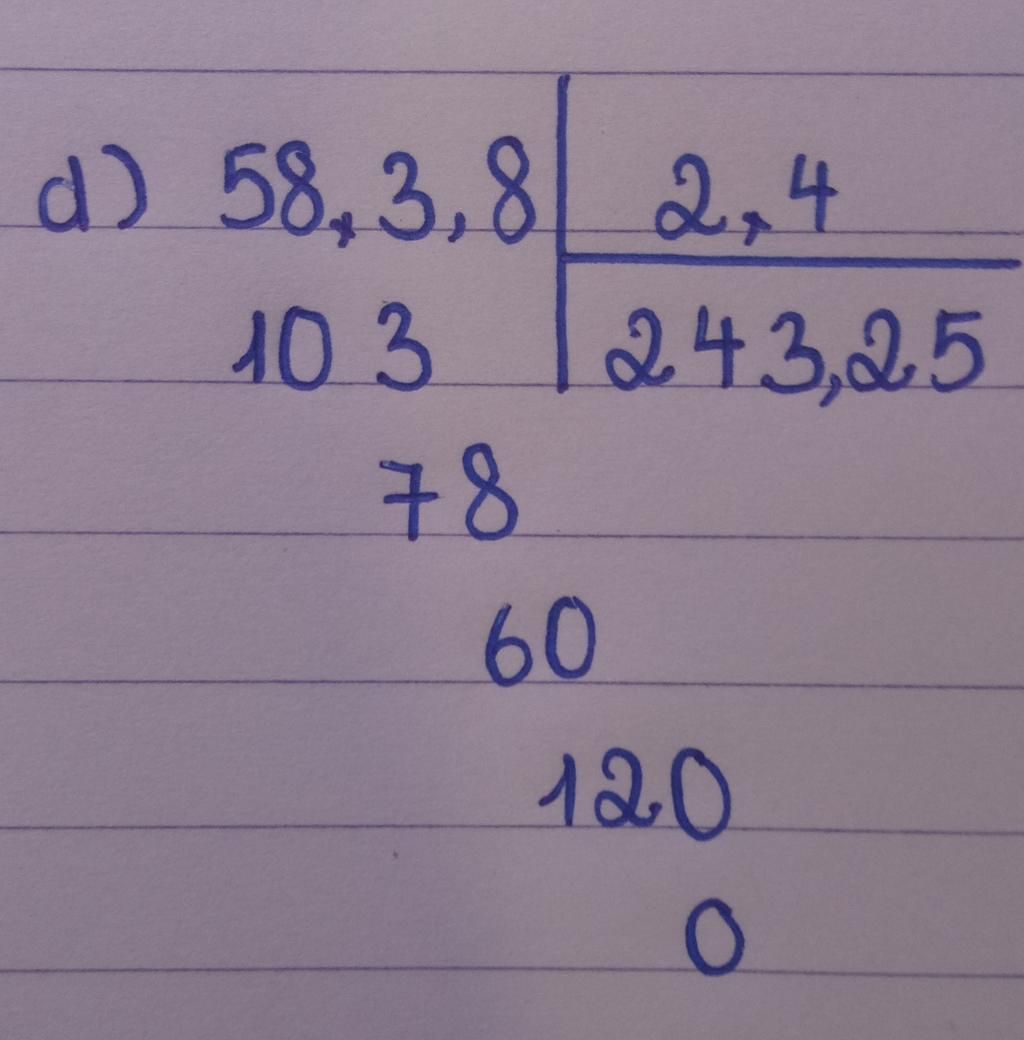 d) 58,3,8 2,4
103 243,25
78
60
120
0